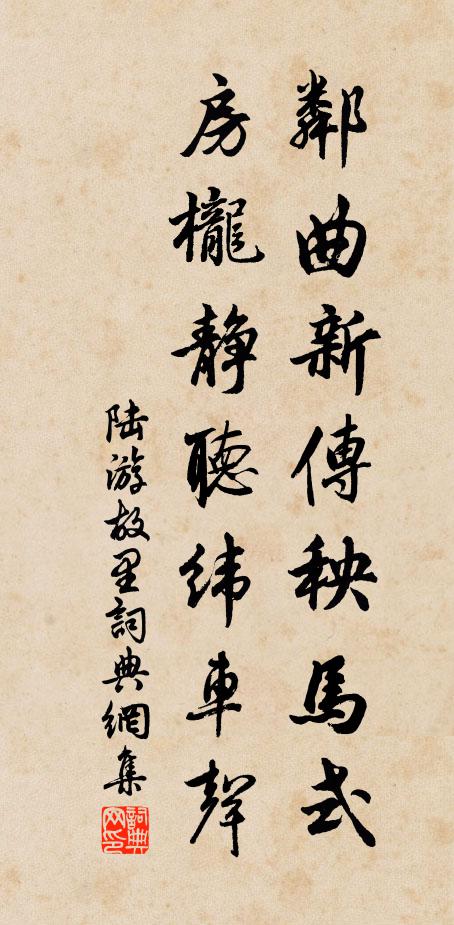 鄰曲新傳秧馬式
房櫳靜聽緯車聲
陸游故里詞典網集
詞典网印